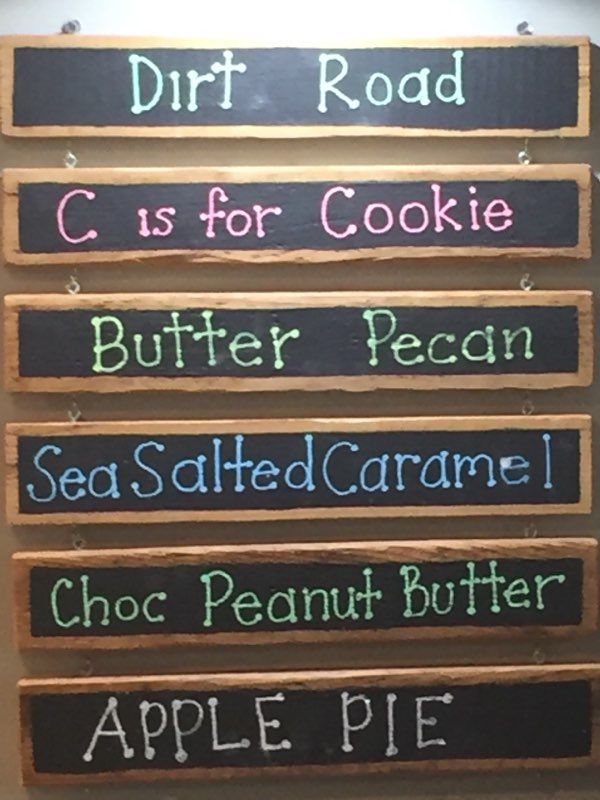 Dirt Road
C is for Cookie
Butter Pecan
Sea Salted Caramel
Choc Peanut Butter
APPLE PIE